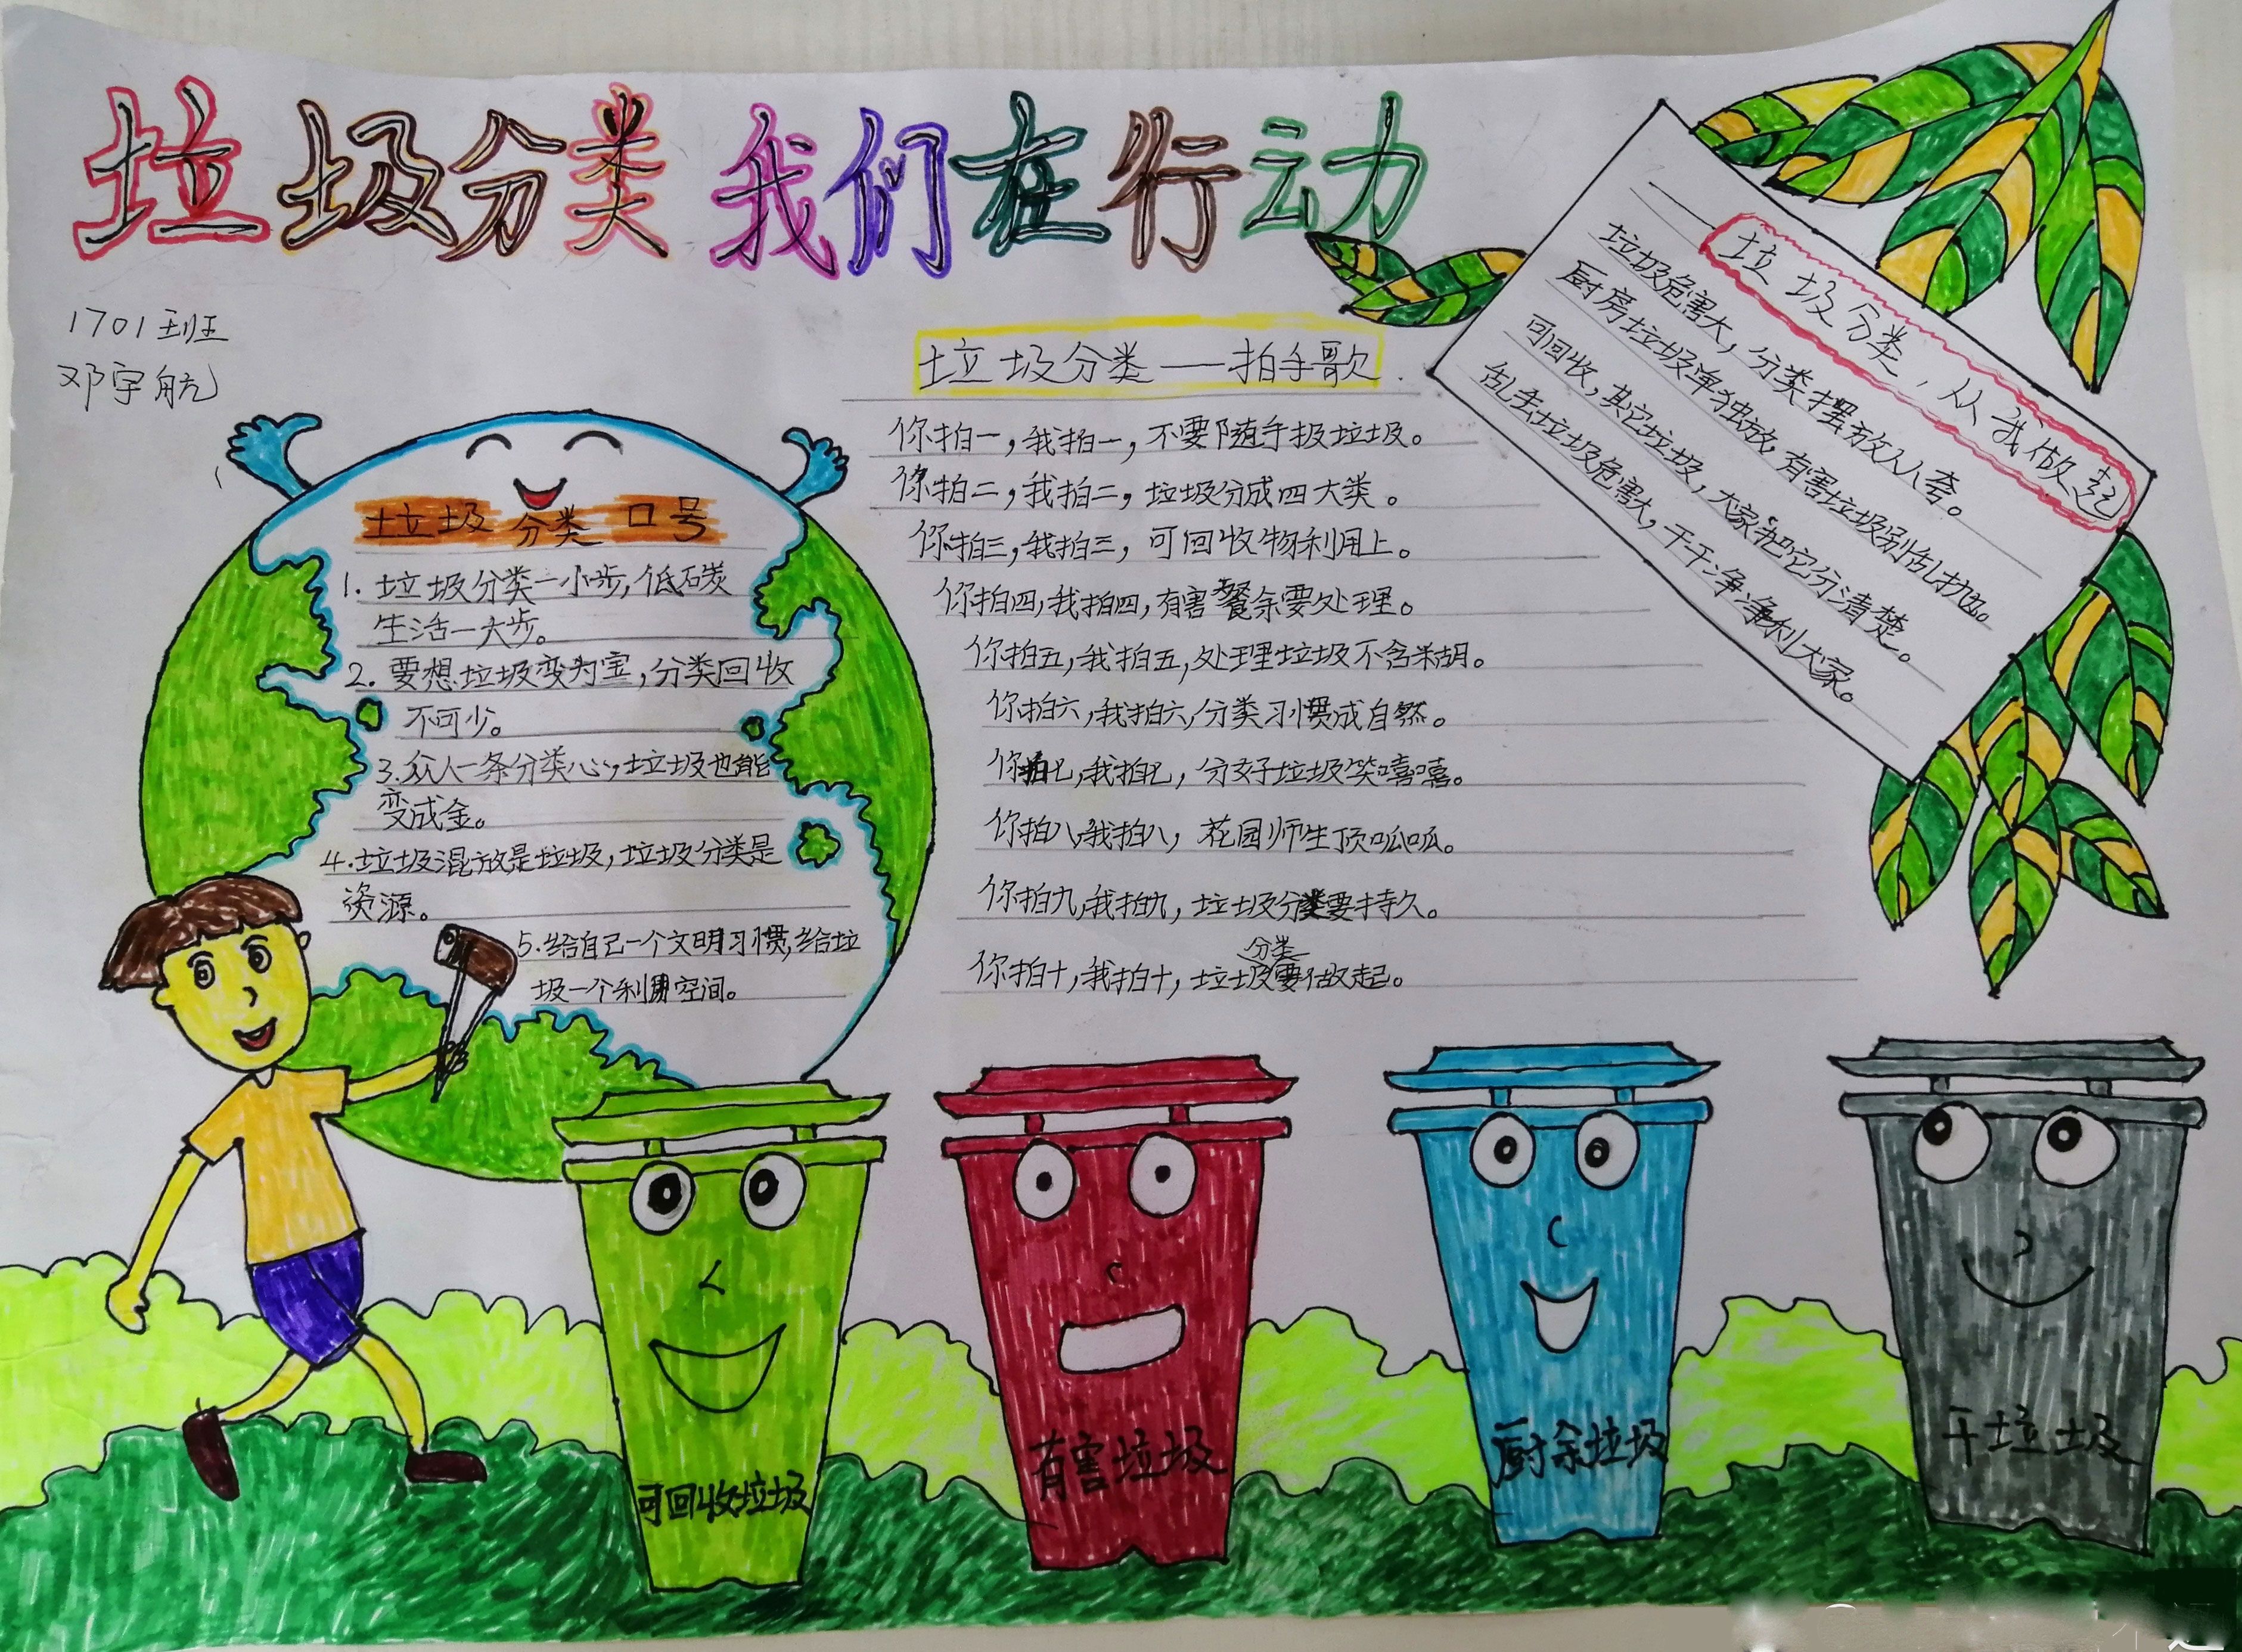 垃圾分类 我们在行动
1701班
邓宇航
垃圾分类口号
1. 垃圾分类一小步,低碳
生活一大步。
2. 要想垃圾变为宝,分类回收
不可少。
3.众人一条分类心,垃圾也能
变成金。
4.垃圾混放是垃圾,垃圾分类是
资源。
5.给自己一个文明习惯,给垃
圾一个利用空间。
垃圾分类——拍手歌
你拍一,我拍一,不要随手扔垃圾。
你拍二,我拍二,垃圾分成四大类。
你拍三,我拍三,可回收物利用上。
你拍四,我拍四,有害餐余要处理。
你拍五,我拍五,处理垃圾不含糊。
你拍六,我拍六,分类习惯成自然。
你拍七,我拍七,分好垃圾笑嘻嘻。
你拍八,我拍八,花园师生顶呱呱。
你拍九,我拍九,垃圾分类要持久。
你拍十,我拍十,垃圾分类要做起。
垃圾分类,从我做起
垃圾危害大,分类摆放入人奪。
厨房垃圾单独放,有害垃圾别乱扔。
可回收,其它垃圾,大家把它分清楚。
乱丢垃圾危害大,干干净净利大家。
可回收垃圾
有害垃圾
厨余垃圾
干垃圾